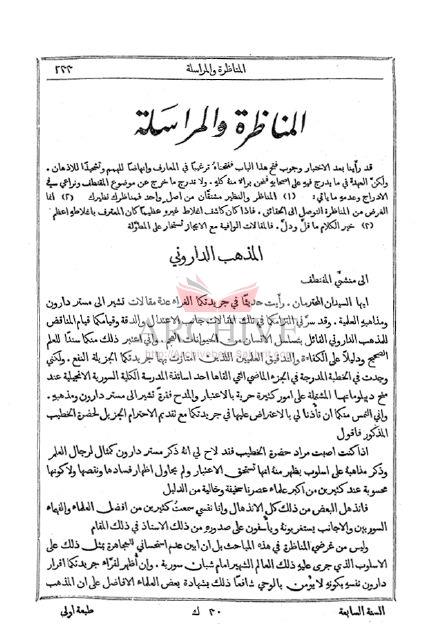 المناظرة والمراسلة
٢٣٣
المناظرة والمراسَلة
قد رأينا بعد الاختبار وجوب فتح هذا الباب ففتحناهُ ترغيبًا في المعارف وإنهاضًا للهمم وتشحيذًا للاذهان .
ولكنّ العهدة في ما يدرج فيهِ على اصحابهِ فنحن برالا منهُ كلهِ . ولا ندرج ما خرج عن موضوع المقتطف ونراعي في
الادراج وعدمهِ ما ياتي : (١) المناظر والنظير مشتقّان من اصل واحد فمناظرك نظيرك (٢) انما
الغرض من المناظرة التوصل الى الحقائق . فاذا كان كاشف اغلاط غيرهِ عظيمًا كان المعترف باغلاطهِ اعظم
(٣) خير الكلام ما قلّ ودلّ . فالمقالات الوافية مع الايجاز تستخار على المطوّلة
المذهب الداروني
الى منشئَي المقتطف
ايها السيدان المحترمان . رأيت حديثًا في جريدتكما الغراء عدة مقالات تشير الى مستر دارون
ومذاهبهِ العلمية . وقد سرّني التزامكما في تلك المقالات جانب الاعتدال والدقة وقيامكما قيام المناقض
للمذهب الداروني القائل بتسلسل الانسان من الحيوانات العجم . واني اعتبر ذلك منكما سندًا للعلم
الصحيح ودليلًا على الكفاءة والتدقيق العلميين اللذين
جريدتكما الجزيلة النفع . ولكني
وجدت في الخطبة المدرجة في الجزء الماضي التي القاها احد اساتذة المدرسة الكلية السورية الانجيلية عند
منح دبلوماتها المشتملة على امور كثيرة حرية بالاعتبار والمدح فقرةً تشير الى مستر دارون ومذهبهِ .
واني التمس منكما ان تأذنا لي بالاعتراض عليها في جريدتكما مع تقديم الاحترام الجزيل لحضرة الخطيب
المذكور فاقول
اذا كنت اصبت مراد حضرة الخطيب فقد لاح لي انهُ ذكر مستر دارون كمثال لرجال العلم
وذكر مذاهبهُ على اسلوب يظهر منهُ انها تستحق الاعتبار ولم يحاول اظهار فسادها ونقصها ولا كونها
محسوبة عند كثيرين من اكبر علماء عصرنا سخيفة وخالية من الدليل
فانذهل البعض من ذلك كل الانذهال وانا نفسي سمعت كثيرين من افضل العلماء والفهماء
السوريين والاجانب يستغربونهُ ويأسفون على صدورهِ من ذلك الاستاذ في ذلك المقام
وليس من غرضي المناظرة في هذه المباحث بل ان ابين عدم استحساني للمجاهرة بمثل ذلك على
الاسلوب الذي جرى عليهِ ذلك العالم الشهير امام شبان سورية . وان اظهر لقراء جريدتكما اقرار
دارون نفسهِ بكونهِ لا يؤمن بالوحي شافعًا ذلك بشهادة بعض العلماء الافاضل على ان المذهب
السنة السابعة
٣٠ ك
طبعة اولى
ARCHIVE